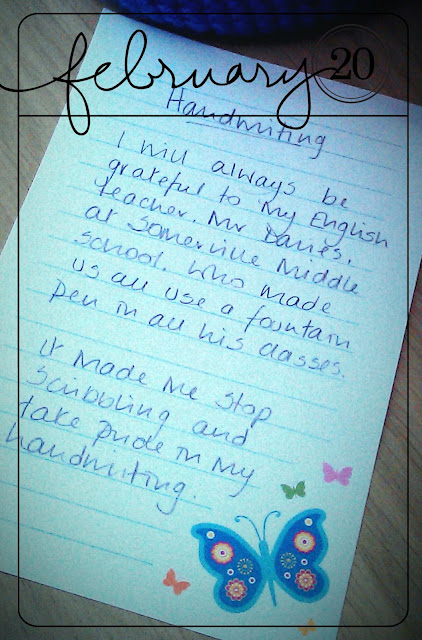 february 20
Handwriting
I will always be
grateful to my English
teacher, Mr Davies,
at Somerville Middle
School, who made
us all use a fountain
pen in all his classes.
It made me stop
scribbling and
take pride in my
handwriting.